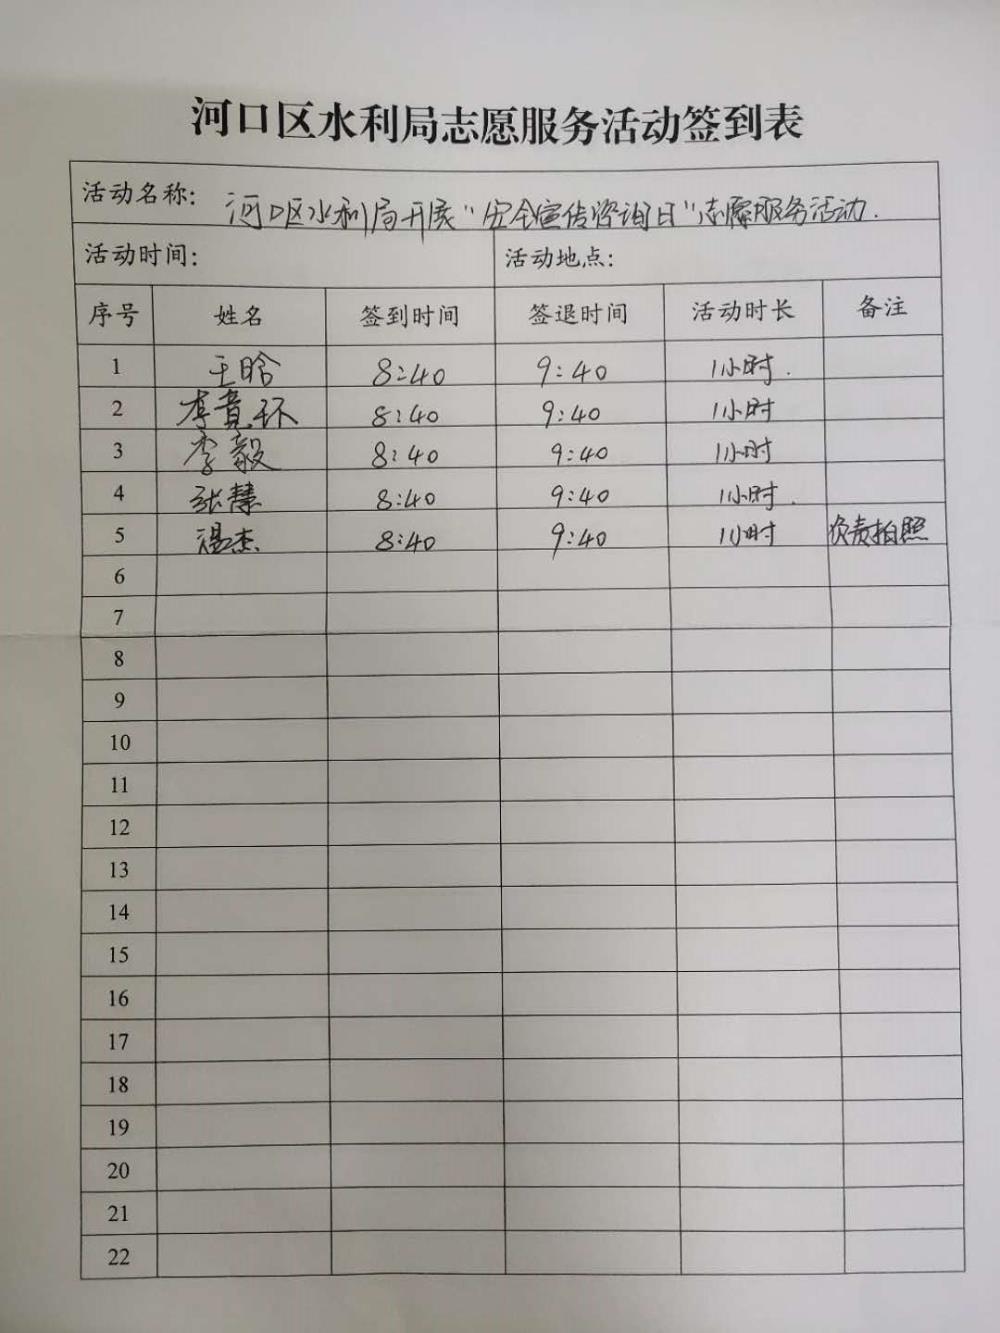 河口区水利局志愿服务活动签到表
活动名称: 河口区水利局开展"安全宣传咨询日"志愿服务活动.
活动时间: 活动地点:
序号 姓名 签到时间 签退时间 活动时长 备注
1 王晗 8:40 9:40 1小时.
2 李竟环 8:40 9:40 1小时
3 李毅 8:40 9:40 1小时
4 张慧 8:40 9:40 1小时.
5 温杰 8:40 9:40 1小时 负责拍照
6
7
8
9
10
11
12
13
14
15
16
17
18
19
20
21
22